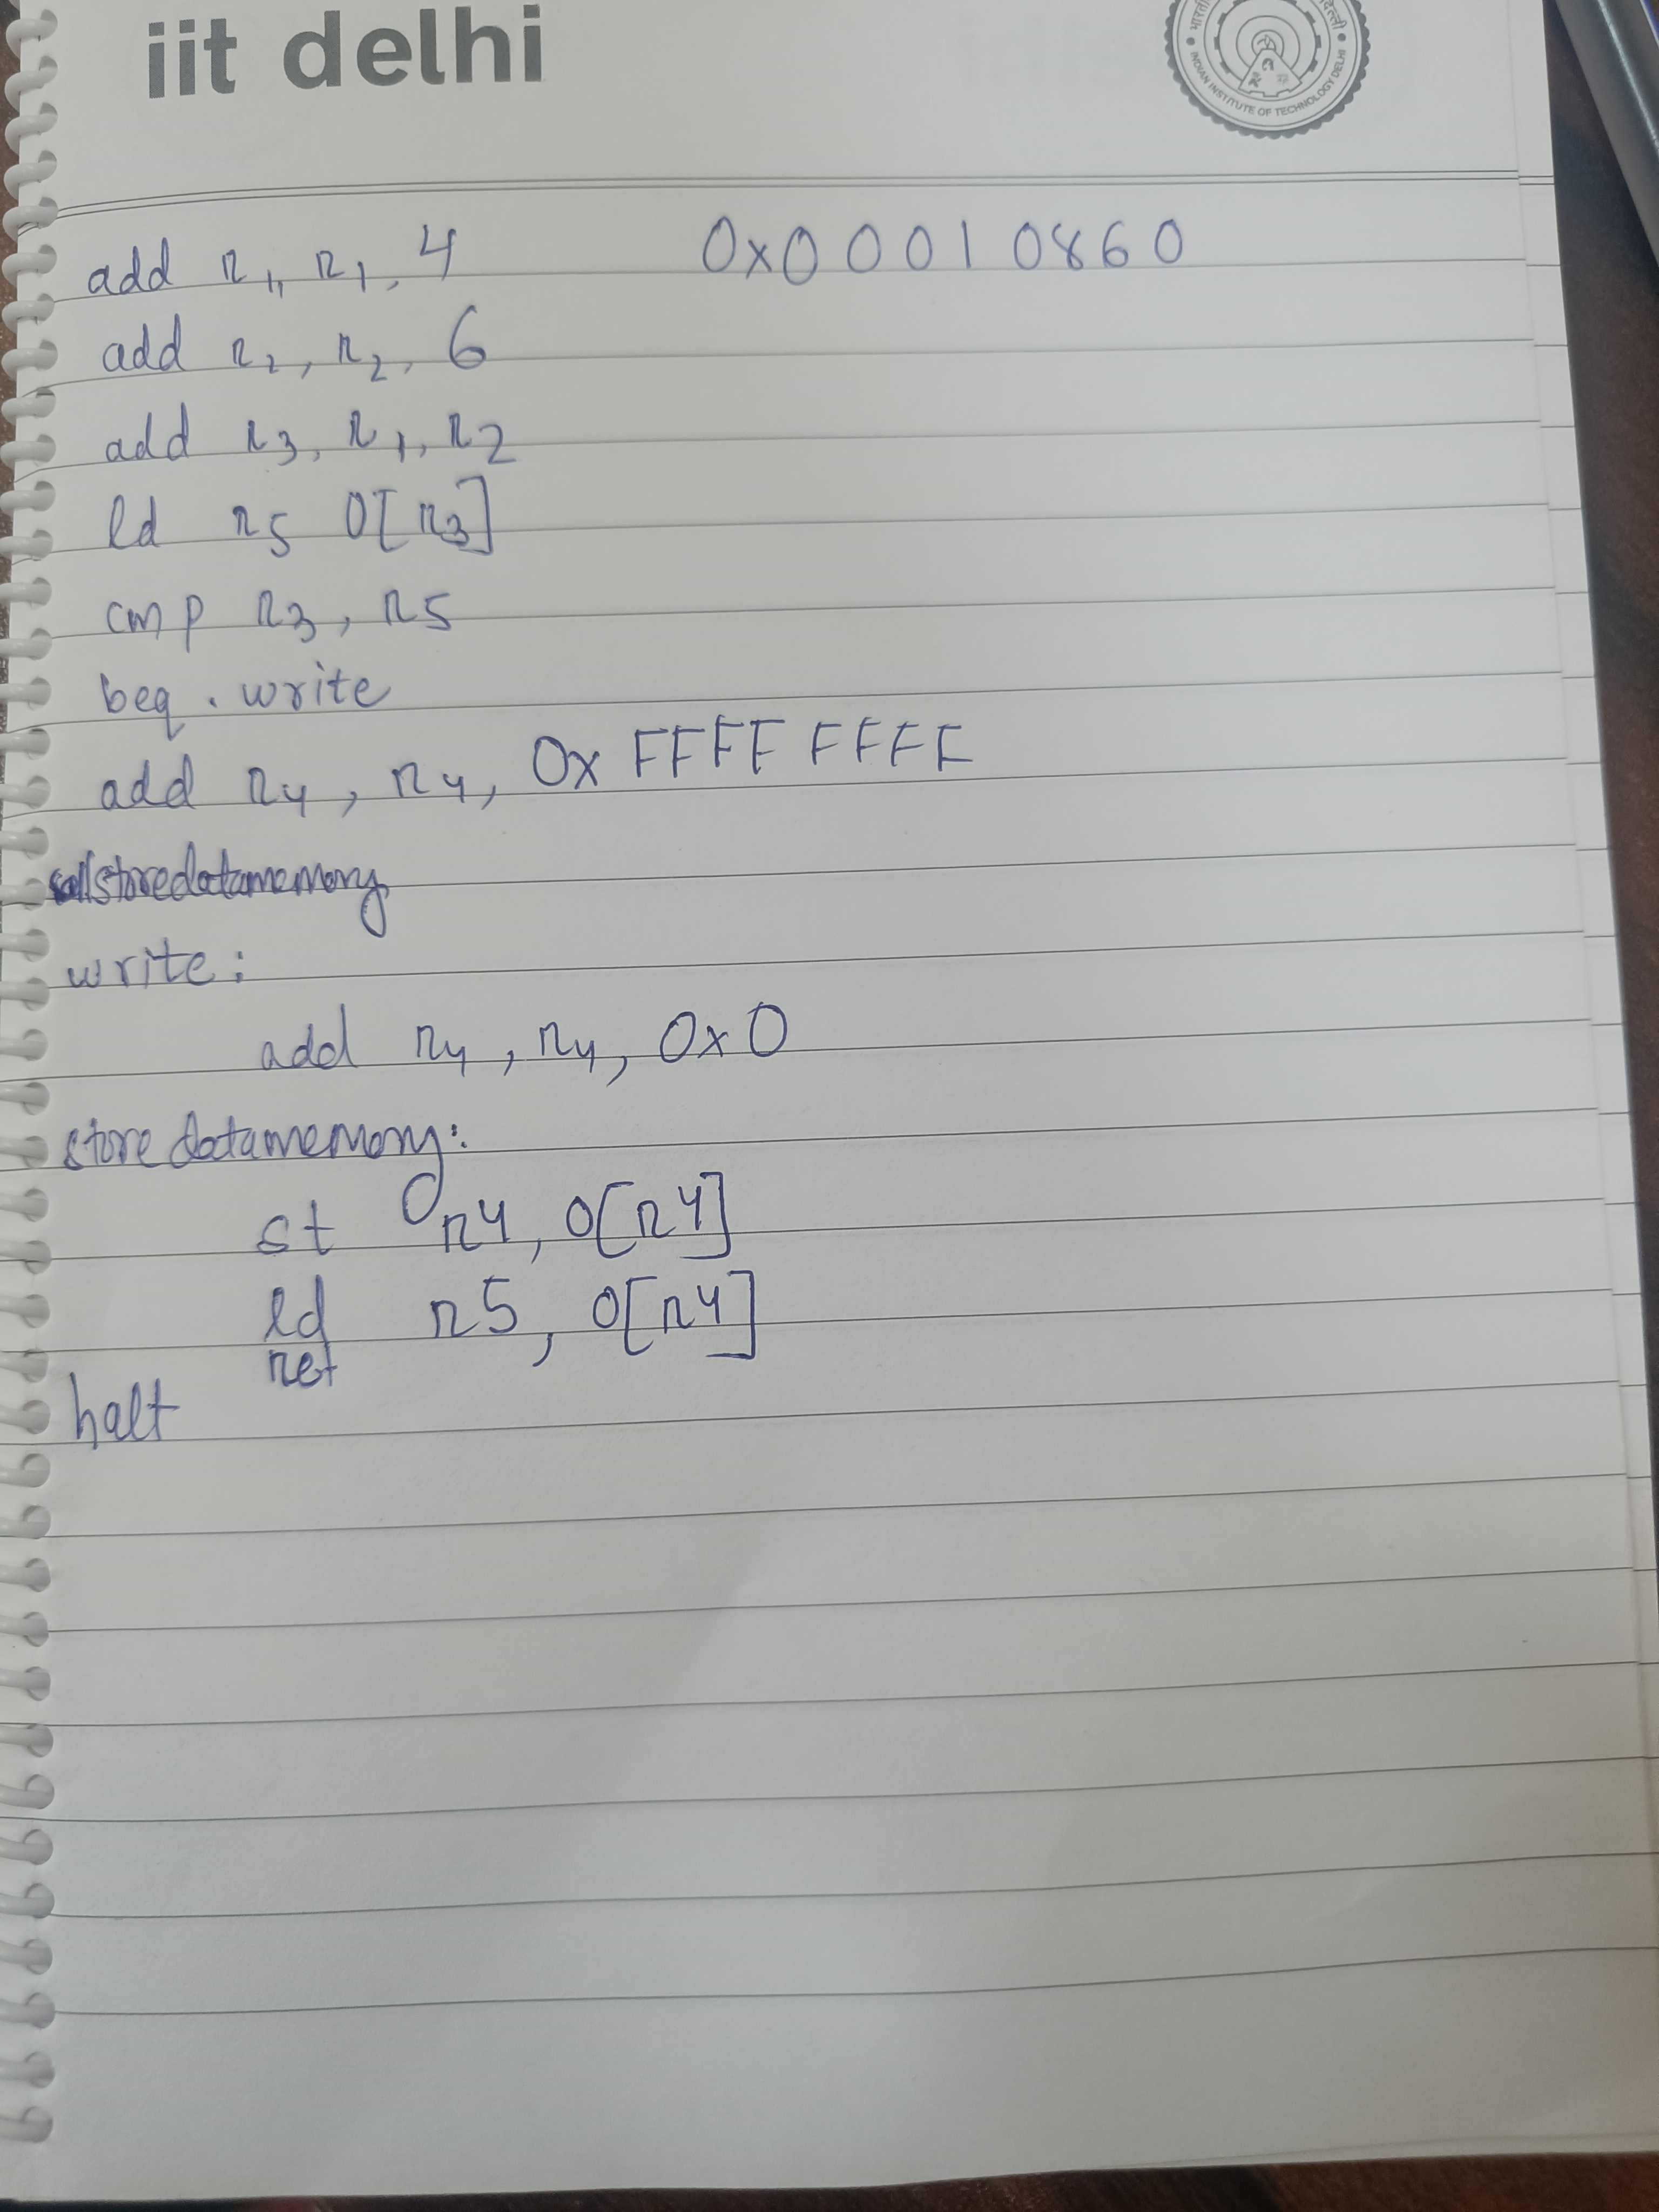 iit delhi
भारती
दिल्ली
INDIAN INSTITUTE OF TECHNOLOGY DELHI
add r1, r1, 4 0x00010860
add r2, r2, 6
add r3, r1, r2
ld r5 0[r3]
cmp r3, r5
beq .write
add r4, r4, 0xFFFF FFFF
call storedatamemory
write:
add r4, r4, 0x0
storedatamemory:
st r4, 0[r4]
ld r5, 0[r4]
ret
halt